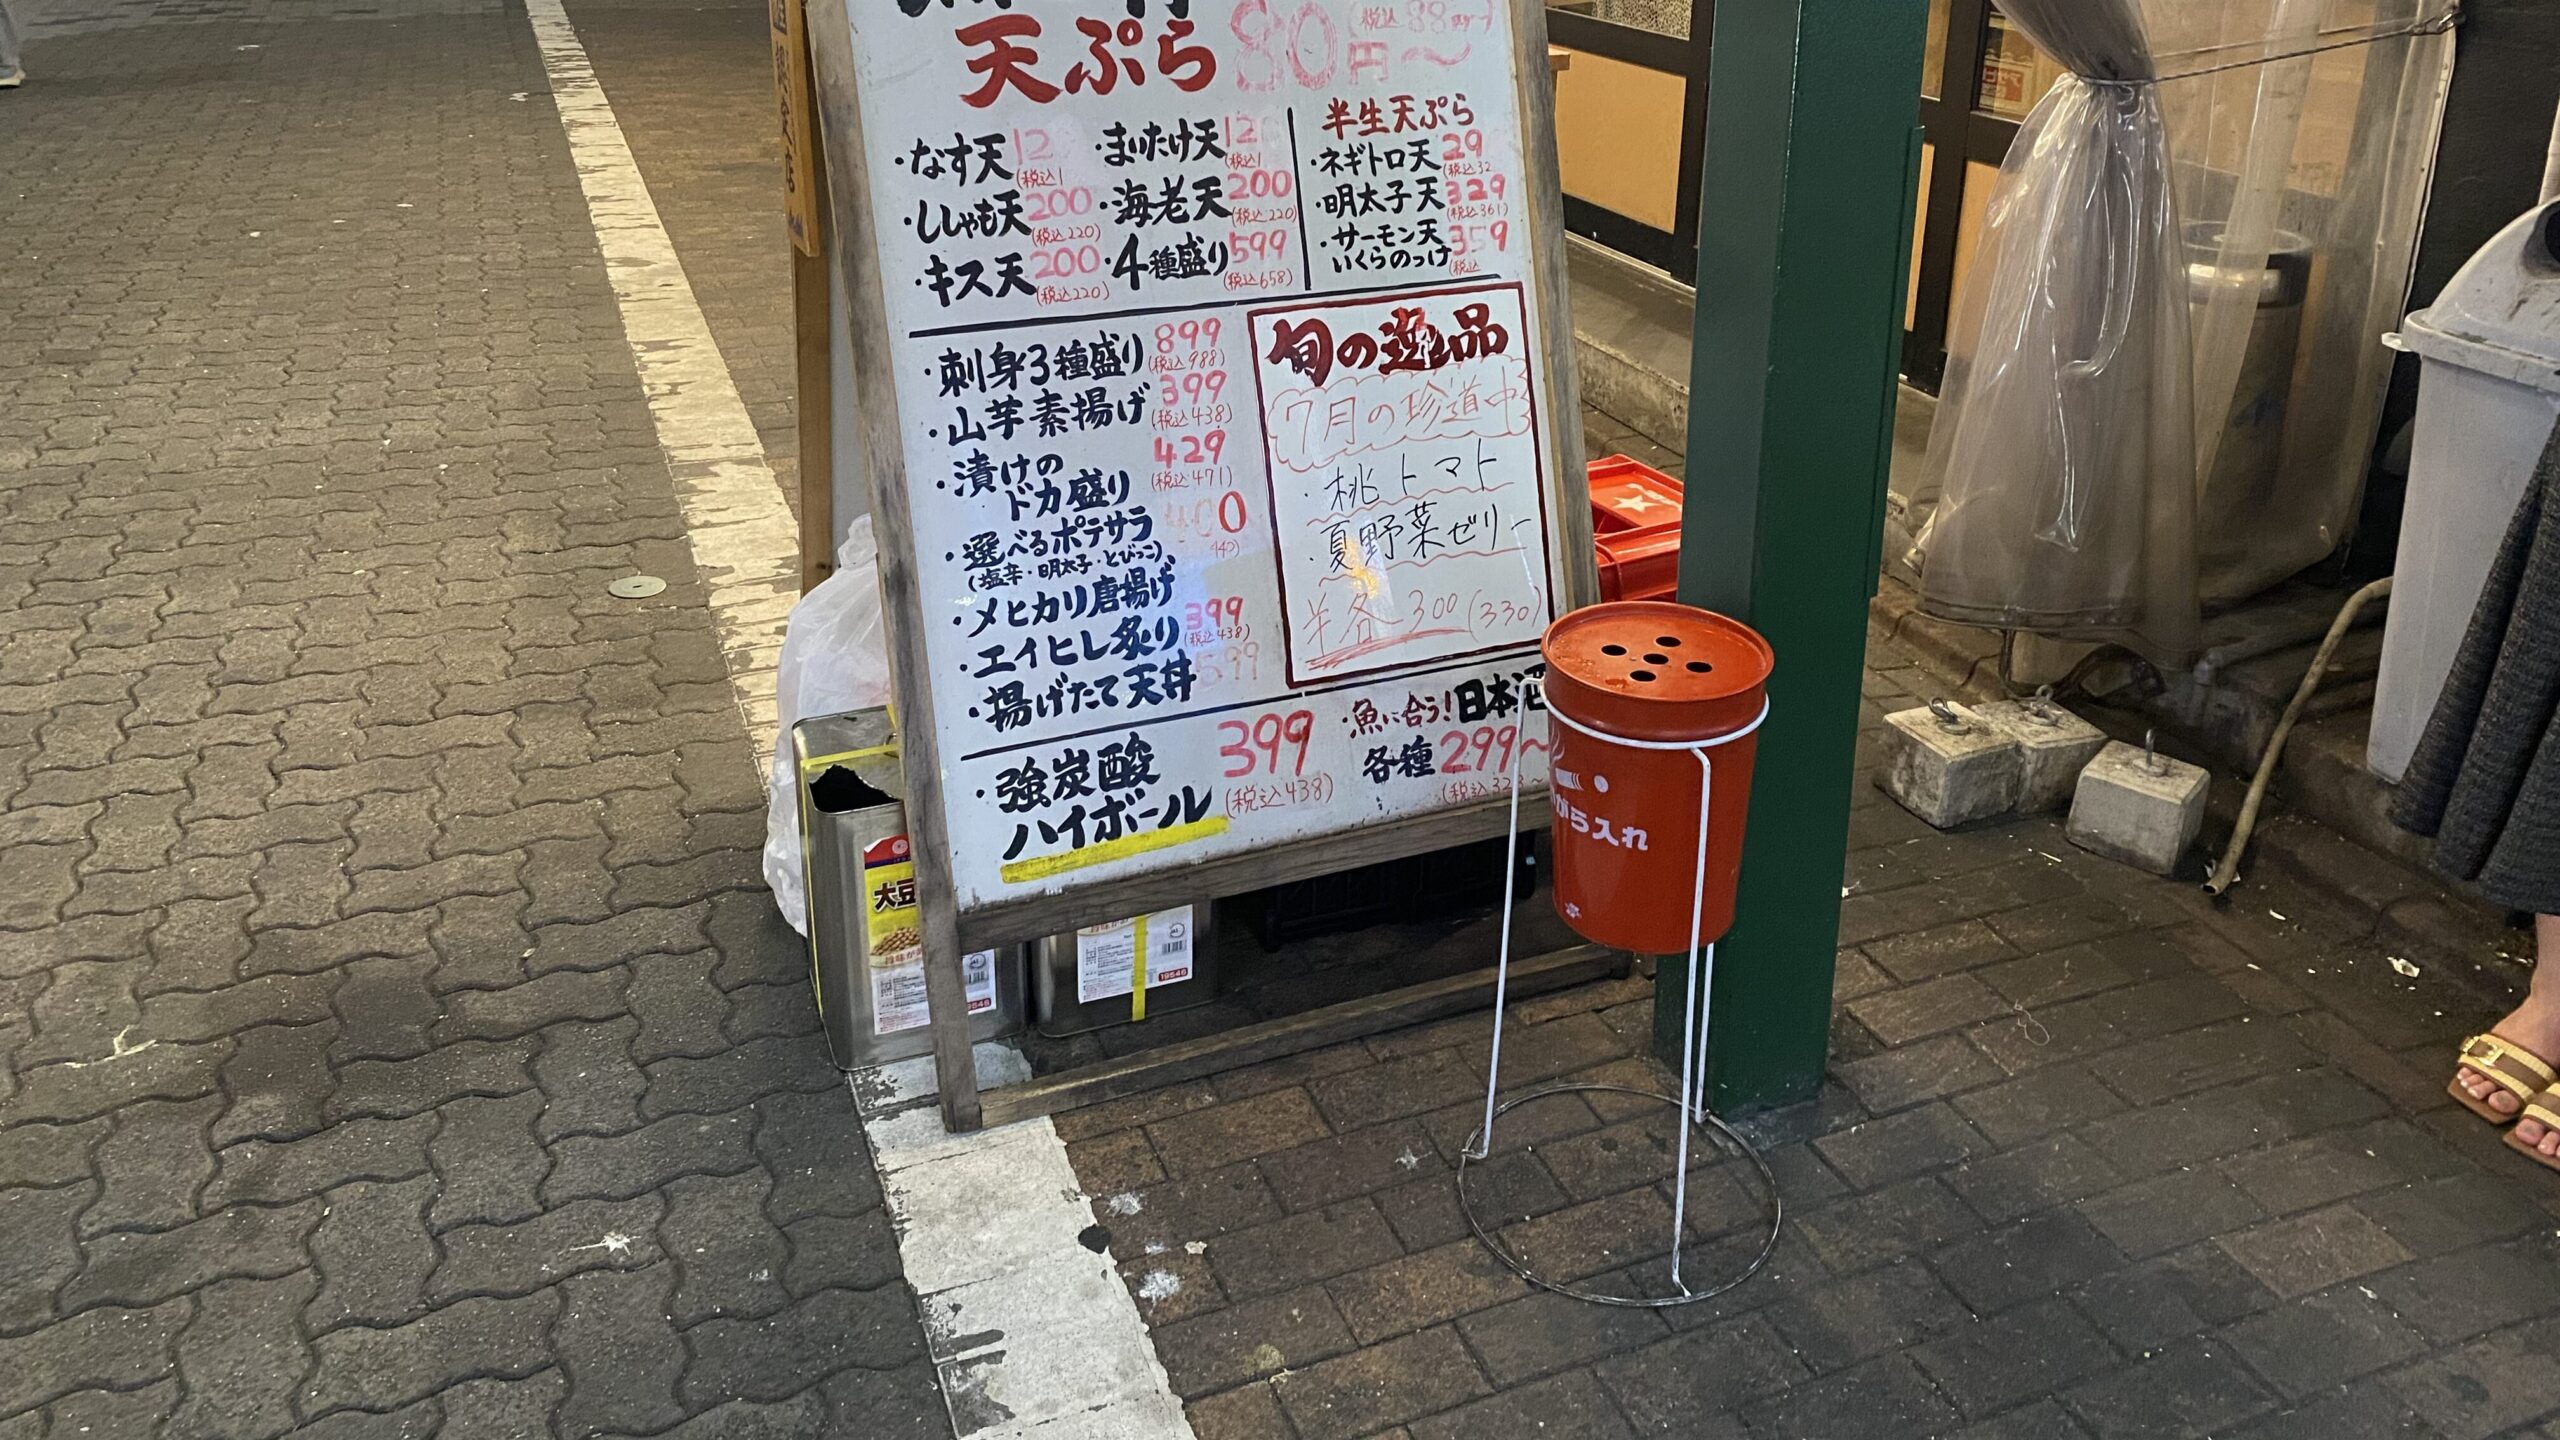 天ぷら 80円〜 (税込88円)
・なす天 12 (税込1
・まいたけ天 12 (税込1
・ししゃも天 200 (税込220)
・海老天 200 (税込220)
・キス天 200 (税込220)
・4種盛り 599 (税込658)
半生天ぷら
・ネギトロ天 29 (税込32
・明太子天 329 (税込361)
・サーモン天 359
いくらのっけ (税込
・刺身3種盛り 899 (税込988)
・山芋素揚げ 399 (税込438)
・漬けの 429
ドカ盛り (税込471)
・選べるポテサラ 400
(塩辛・明太子・とびっこ) 440)
・メヒカリ唐揚げ
・エイヒレ炙り 399 (税込438)
・揚げたて天丼 599
旬の逸品
7月の珍道中
・桃トマト
・夏野菜ゼリー
各300(330)
・強炭酸 399
ハイボール (税込438)
・魚に合う!日本酒
各種299〜
(税込32 〜
がら入れ
大豆
19546
9546